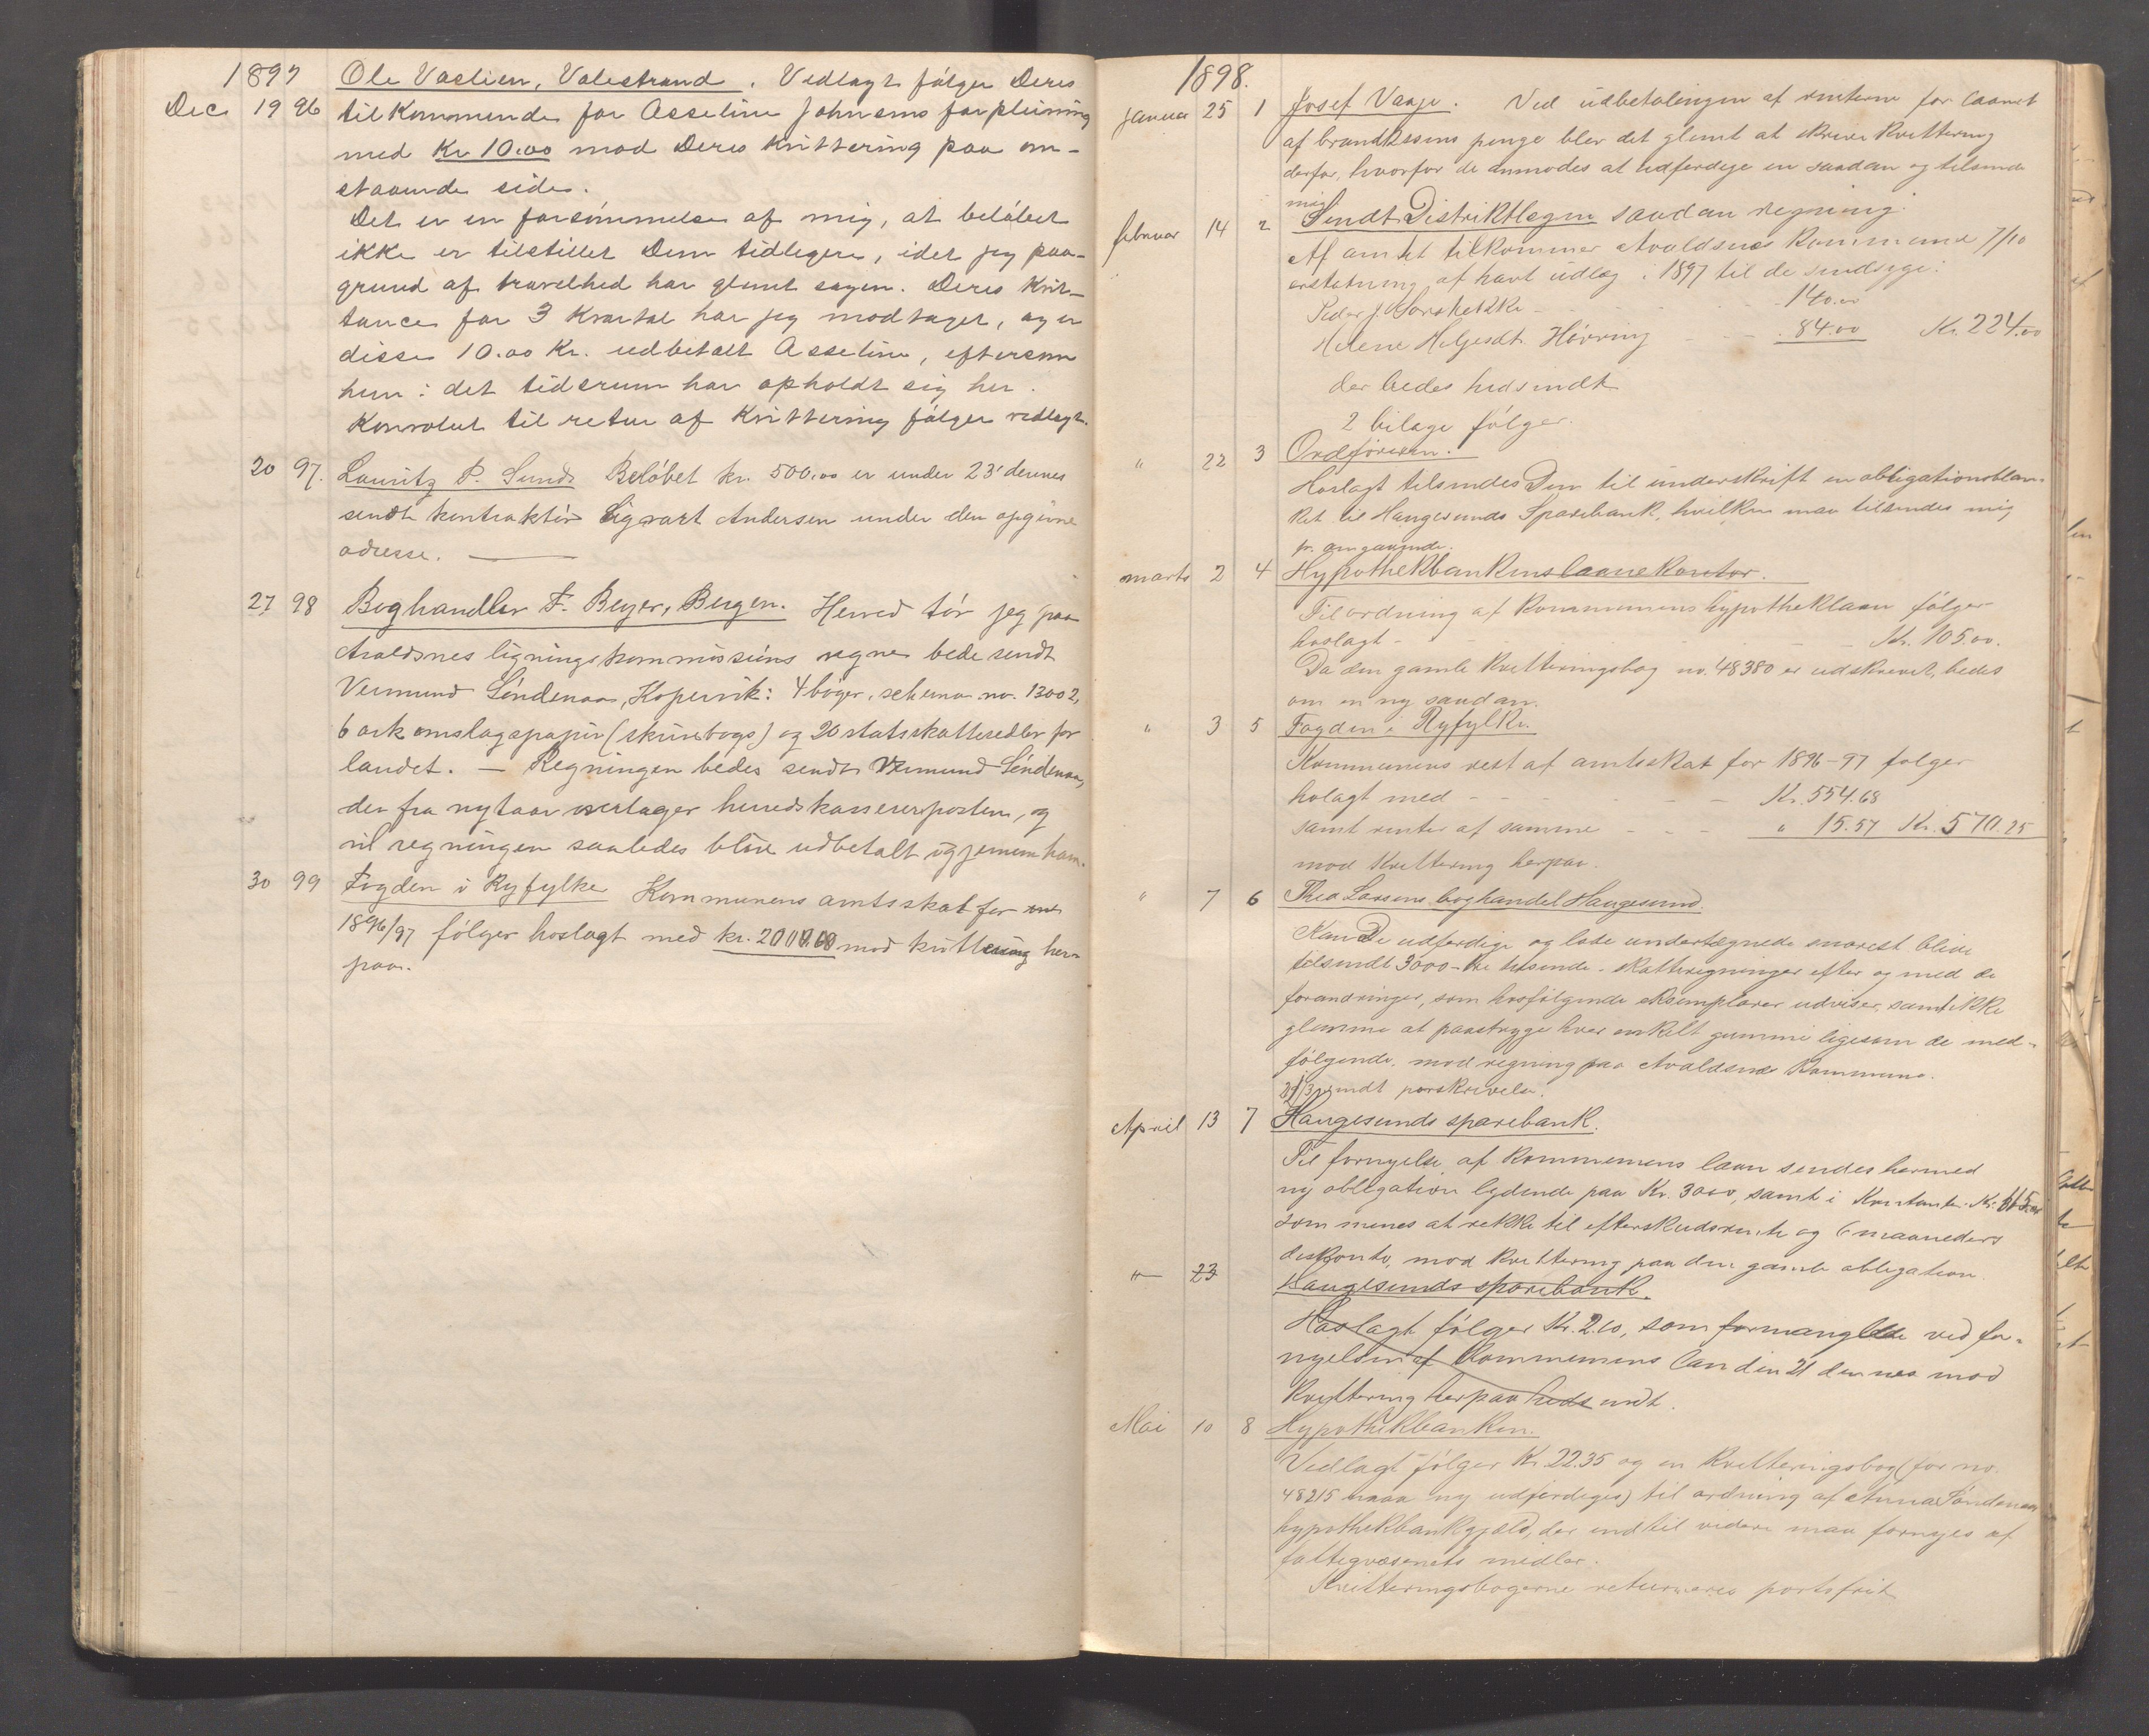 1897
Ole Vaslien, Valestrand. Vedlagt følger Deres
Dec 19 96 tilkommende for Asseline Johnsens forpleining
med Kr 10.00 mod Deres kvittering paa om-
staaende side.
Det er en forsømmelse af mig, at beløbet
ikke er tilstillet Dem tidligere, idet jeg paa-
grund af travelhed har glemt sagen. Deres kvit-
tance for 3 kvartal har jeg modtaget, og er
disse 10.00 Kr. udbetalt Asseline, eftersom
hun i det tidsrum har opholdt sig her.
Konvolut til retur af kvittering følger vedlagt.
20 97. Lauritz P. Sund Beløbet kr. 500.00 er under 23' dennes
sendt kontraktør Sigvart Andersen under den opgivne
adresse.
27 98 Boghandler F. Beyer, Bergen. Herved tør jeg paa
Avaldsnes ligningskommissions vegne bede sendt
Vermund Søndenaa, Kopervik: 4 bøger, schema no. 13002,
6 ark omslagspapir (skrivebogs) og 20 statsskattesedler for
landet. — Regningen bedes sendt Vermund Søndenaa,
der fra nytaar overtager herredskassererposten, og
vil regningen saaledes blive udbetalt igjennem ham.
30 99 Fogden i Ryfylke Kommunens amtsskat for
1896/97 følger hoslagt med kr. 2000.00 mod kvittering her-
paa.
1898.
Januar 25 1 Josef Vaage. Ved udbetalingen af renterne for laanet
af brandkassens penge blev det glemt at skrive kvittering
derfor, hvorfor de anmodes at udferdige en saadan og tilsende
mig
februar 14 2 Sendt Distriktlægen saadan regning:
Af amtet tilkommer Avaldsnes kommune 7/10
erstatning af havt udlæg i 1897 til de sindsyge:
Peder J. Vorshekke - 140.00
Helene Helgesdt. Høvring - - 84.00 Kr. 224.00
der bedes hidsendt
2 bilage følger.
" 22 3 Ordføreren.
Hoslagt tilsendes Dem til underskrift en obligationsblan-
ket til Haugesunds Sparebank, hvilken maa tilsendes mig
pr. omgaaende.
marts 2 4 Hypothekbankens laanekontor.
Til ordning af kommunens hypotheklaan følger
hoslagt - - - Kr. 105.00.
Da den gamle kvitteringsbog no. 48380 er udskrevet, bedes
om en ny saadan.
" 3 5 Fogden i Ryfylke.
Kommunens rest af amtsskat for 1896-97 følger
holagt med - - - Kr. 554.68
samt renter af samme - - - " 15.57 Kr. 570.25
mod kvittering herpaa.
" 7 6 Thea Larsens boghandel Haugesund.
Kan De udferdige og lade undertegnede snarest blive
tilsendt 3000 - tre tusende - skatteregninger efter og med de
forandringer, som hosfølgende eksemplarer udviser, samt ikke
glemme at paastryge hver enkelt gummi ligesom de med-
følgende, mod regning paa Avaldsnes kommune.
29/3 sendt paaskrivelse.
April 13 7 Haugesunds sparebank.
Til fornyelse af kommunens laan sendes hermed
ny obligation lydende paa Kr. 3000, samt i kontanter Kr. 115.00
som menes at rekke til efterskudsrente og 6 maaneders
diskonto, mod kvittering paa den gamle obligation.
" 23 Haugesunds sparebank.
Hoslagt følger Kr. 2.10, som formanglede ved for-
nyelsen af kommunens laan den 21 dennes mod
kvittering herpaa hidsendt.
Mai 10 8 Hypothekbanken.
Vedlagt følger Kr. 22.35 og en kvitteringsbog (for no.
48215 maa ny udferdiges) til ordning af Anna Søndenaa
hypothekbankgjæld, der indtil videre maa fornyes af
fattigvæsenets midler.
Kvitteringsbogerne returneres portofrit